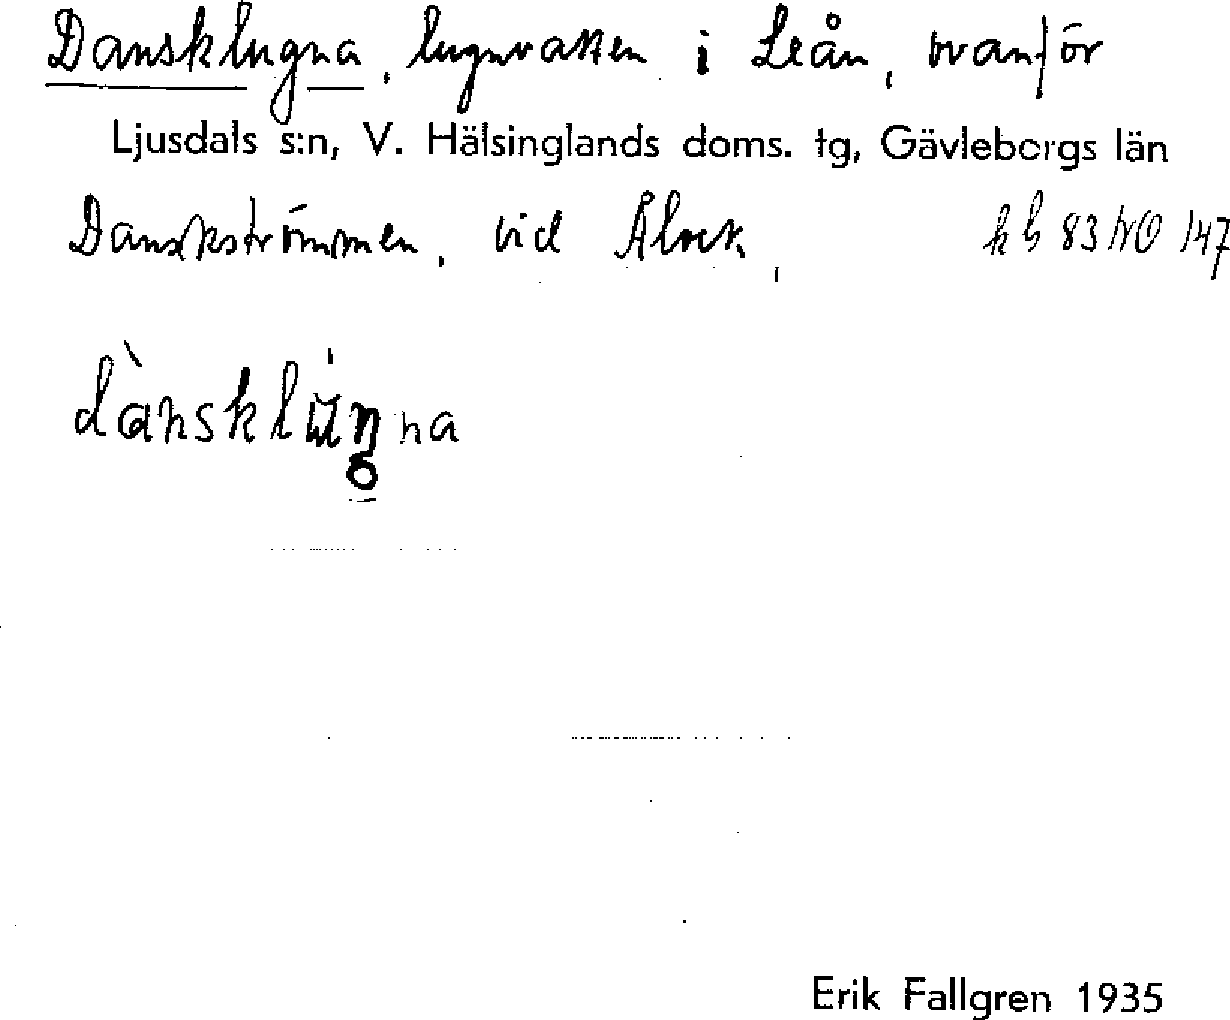 Dansklugna, lugnvatten i Leån, ovanför
Ljusdals s:n, V. Hälsinglands doms. tg, Gävleborgs län
Danskströmmen, vid
kb 83 NO 147
dànsklúŋna
Erik Fallgren 1935